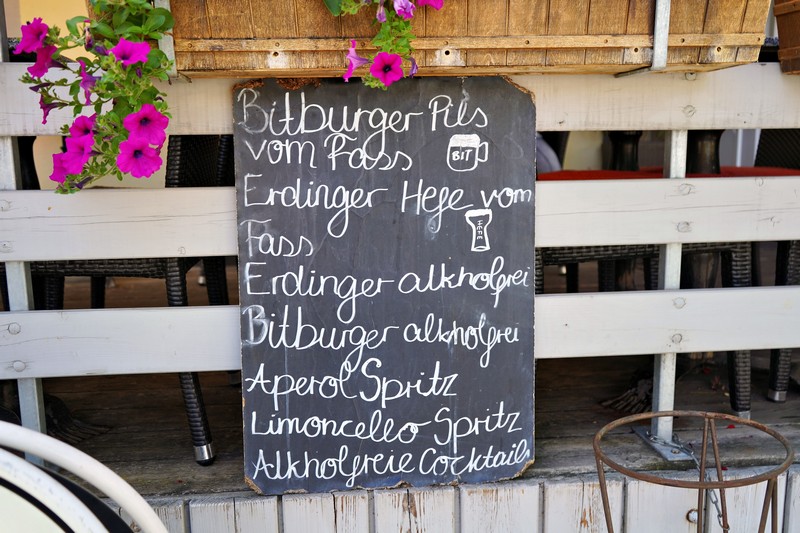 Bitburger Pils
vom Fass
BIT
Erdinger Hefe vom
HEFE
Fass
Erdinger alkholfrei
Bitburger alkholfrei
Aperol Spritz
Limoncello Spritz
Alkholfreie Cocktails